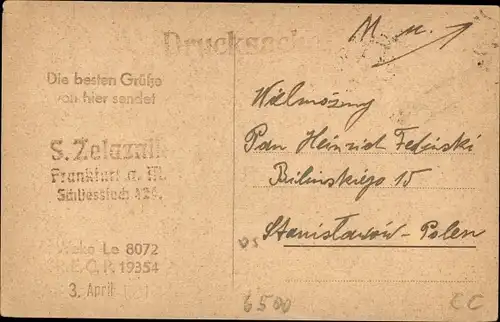 Drucksache
M u.
Die besten Grüße
von hier sendet
S. Zelaznik
Frankfurt a. M.
Schliessfach 424.
Weko Le 8072
E. C. P. 19354
3. April
Wielmożny
Pan Heinrich Fedinski
Bilinskiego 15
Stanisławów - Polen
6500
CC